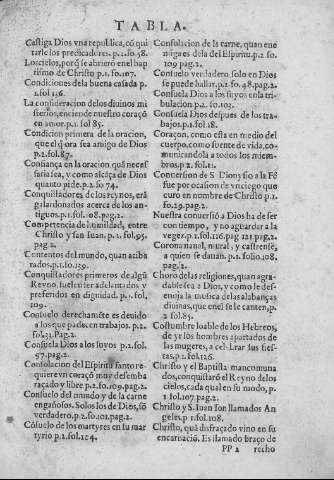 TABLA.
Castiga Dios vna republica, cō qui
tarle los predicadores. p.2.fo.58.
Los cielos, porq̄ se abrierō enel bap
tismo de Christo p.1.fo.107.
Condiciones de la buena casada p.
1.fol 116.
La consideracion delos diuinos mi
sterios, enciende nuestro coraçō
en amor. p.1.fol 85.
Condicion primera de la oracion,
que el q̄ ora sea amigo de Dios
p.2.fol.87.
Confiança en la oracion quã neces
saria sea, y como alcãça de Dios
quanto pide. p.2.fo 74.
Conquistadores de los reynos, erã
galardonados acerca de los an-
tiguos. p.1.fol.108.pag.2.
Competencia de humildad, entre
Christo y san Iuan. p.1.fol.95.
pag.2.
Contentos del mundo, quan aciba
rados. p.1.fo.139.
Conquistadores primeros de algũ
Reyno, suelen ser adelantados y
preferidos en dignidad. p.1. fol,
109.
Consuelo derechamēte es deuido
a los que padecen trabajos. p.2.
fol.21.Pag.2.
Consuela Dios a los suyos p.2.fol.
57.pag.2.
Consolacion del Espiritu santo re-
quiere vn coraçō muy desemba
raçado y libre p.2.fo.109.pag.2.
Consuelo del mundo y de la carne
engañosos. Solo los de Dios, sō
verdadero. p.2.fo.102.pag.2.
Cōsuelo de los martyres en su mar
tyrio p.2.fol.104.
Consolacion de la carne, quan ene
miga es dela del Espiritu. p.2.fo.
109 pag.2.
Consuelo verdadero solo en Dios
se puede hallar. p.2.fo.48.pag.2.
Consuela Dios a los suyos en la tri
bulacion p.2.fo.103.
Consuela Dios despues de los tra-
bajos. p.1.fol.18.
Coraçon, como esta en medio del
cuerpo, como fuente de vida, co-
municandola a todos los miem-
bros. p.2.fol.21.
Conuersion de S. Dionysio a la Fè
fue por ocasion de vn ciego que
curo en nombre de Christo p.1.
fo.29.pag.2.
Nuestra conuersiō a Dios ha de ser
con tiempo, y no aguardar a la
vegez. p.2.fol.116.pag 121 pag.2.
Corona mural, nural, y castrense,
a quien se dauan. p.1.folio.108,
pag.2.
Choro delas religiones, quan agra-
dable sea a Dios, y como le des-
enoja la musica de las alabanças
diuinas, que enel se le canten, p.
2 fol.85.
Costumbre loable de los Hebreos,
de yr los hombres apartados de
las mugeres, a celebrar sus fies-
tas. p.2.fol.126.
Christo y el Baptista mancomuna
dos, conquistarō el Reyno de los
cielos, cada qual en su modo, p.
1 fol.107.pag.2.
Christo y S. Iuan son llamados An
geles. p 1.fol.108.
Christo, quã disfraçado vino en su
encarnaciō. Es llamado braço de
PP 2 recho